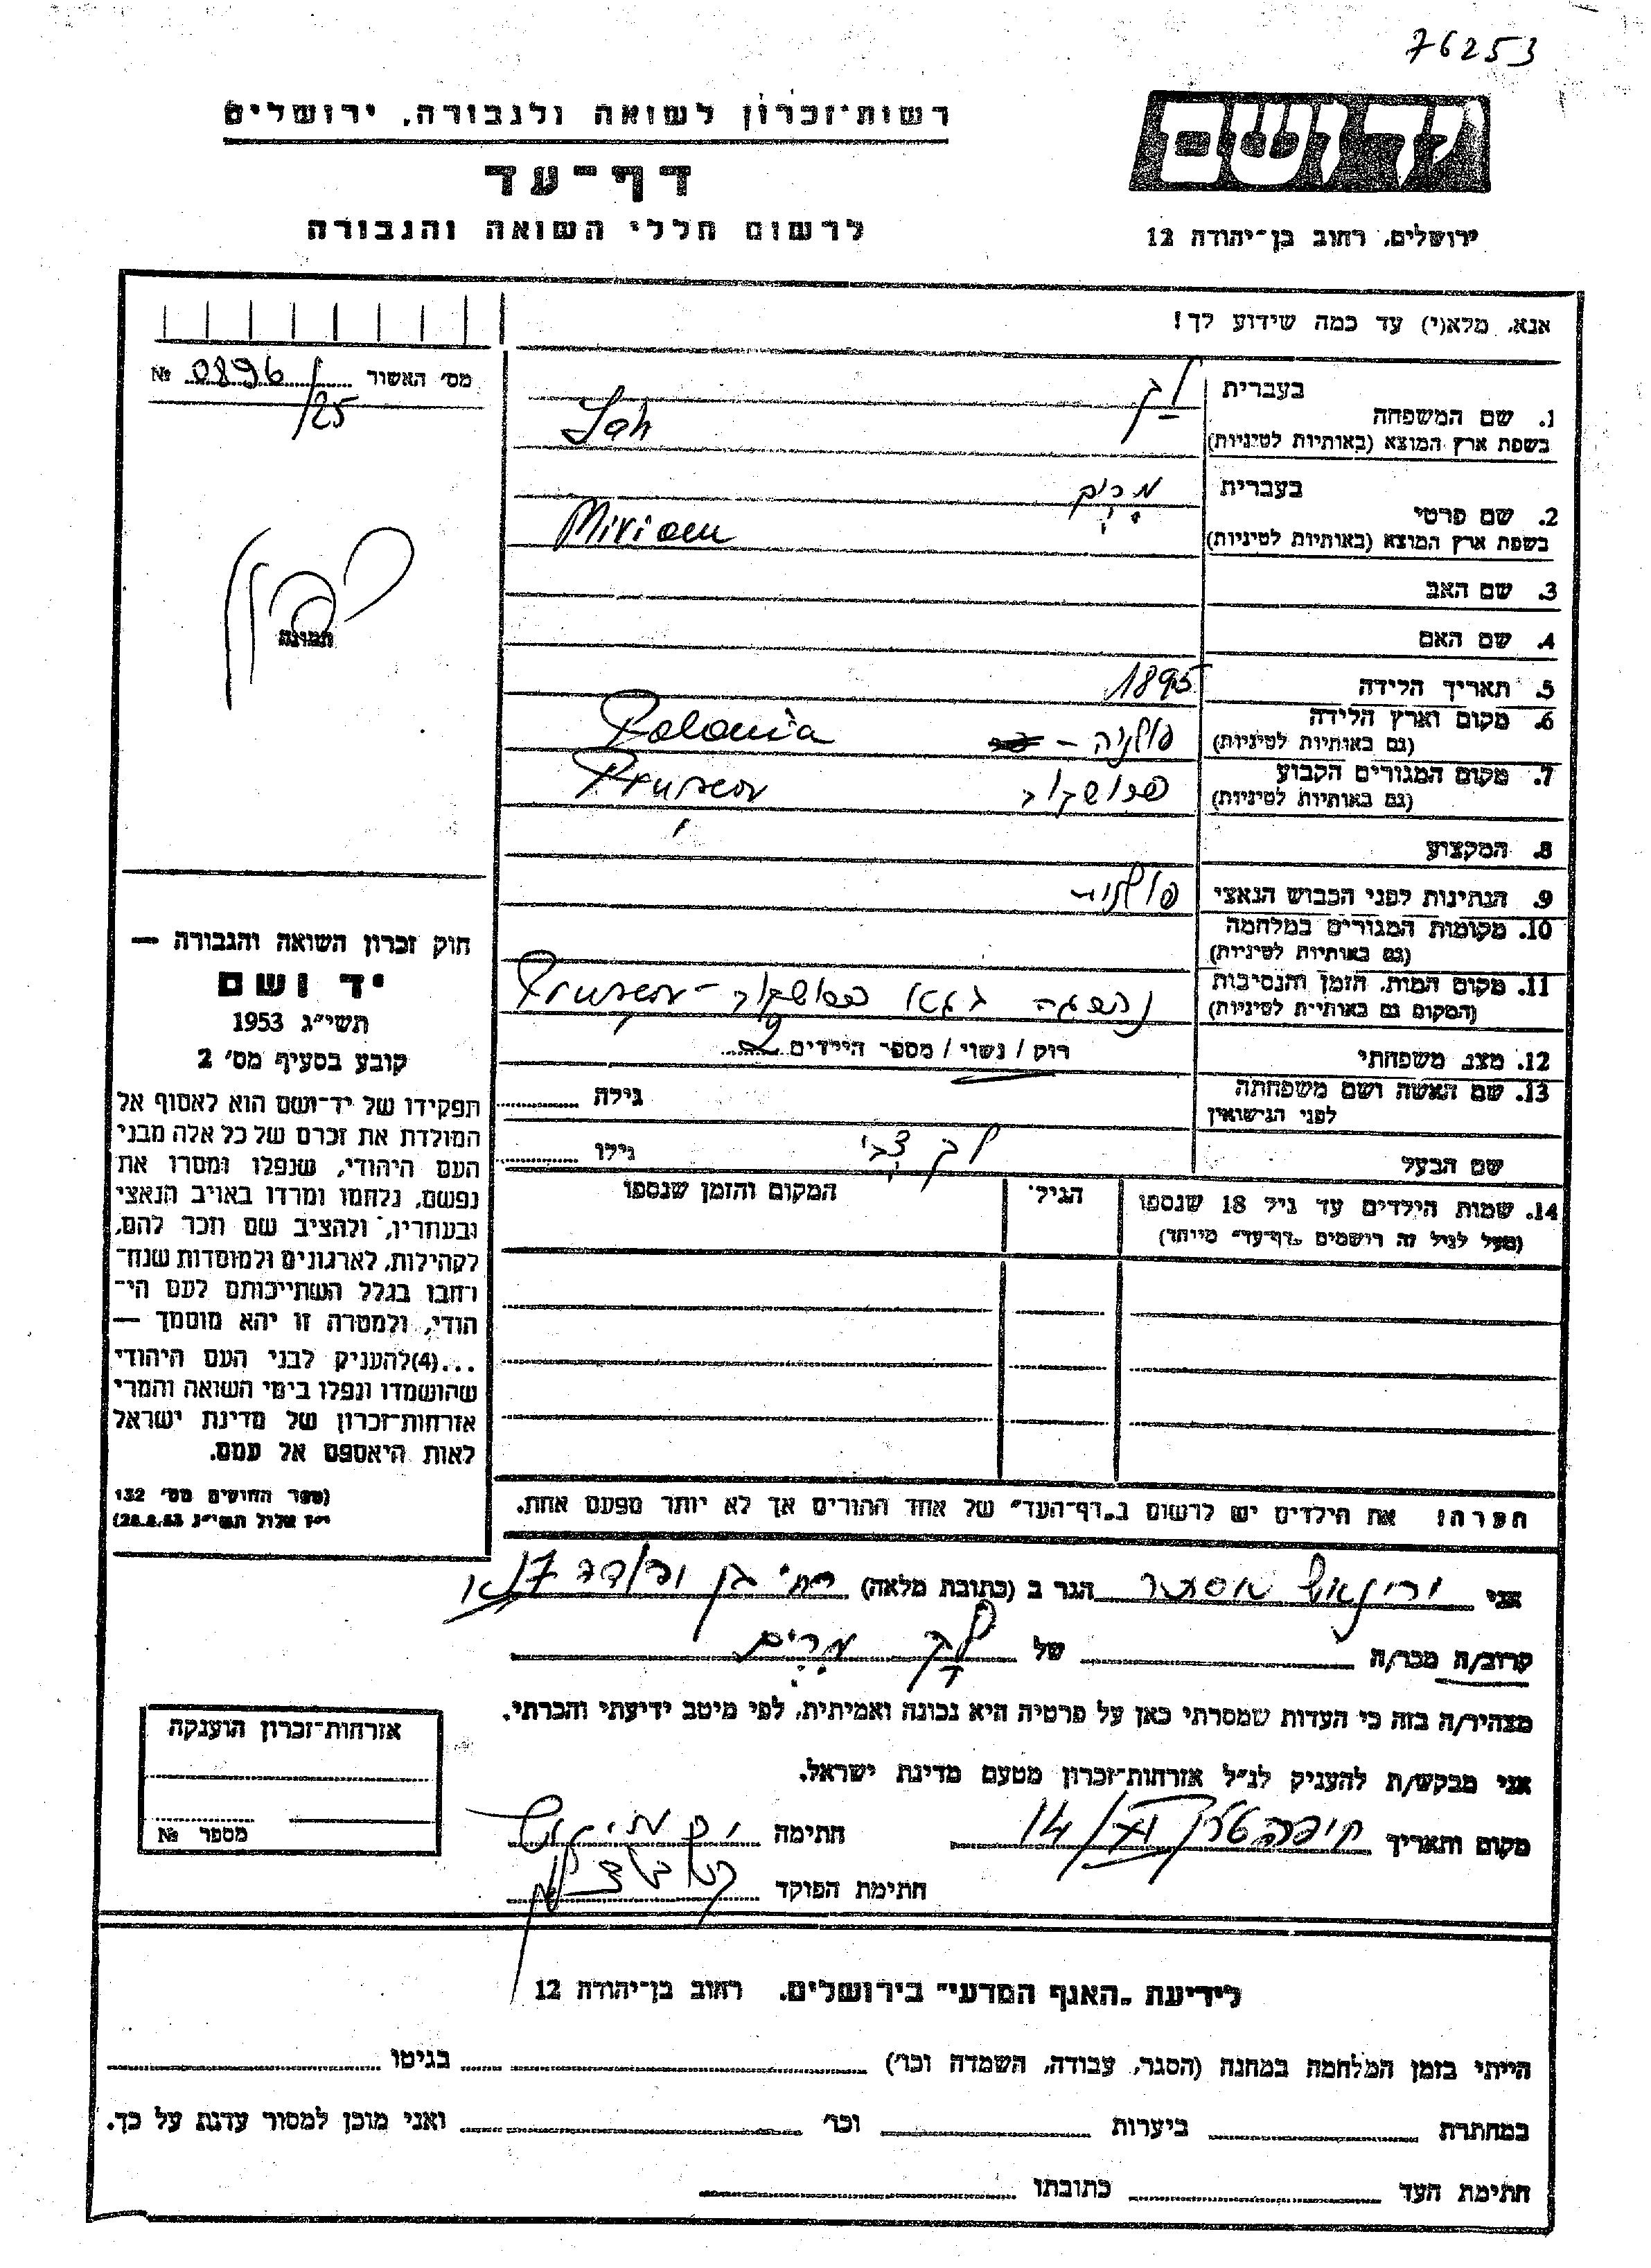 76253
רשות־זכרון לשואה ולגבורה, ירושלים
דף־עד
לרשום חללי השואה והגבורה
יד ושם
ירושלים, רחוב בן־יהודה 12
אנא, מלא(י) עד כמה שידוע לך!
מס׳ האשור 0896 №
/25
בעברית
1. שם המשפחה
בשפת ארץ המוצא (באותיות לטיניות)
בעברית מרים
2. שם פרטי
בשפת ארץ המוצא (באותיות לטיניות) Miriam
3. שם האב
4. שם האם
תמונה
5. תאריך הלידה 1895
6. מקום וארץ הלידה פולניה – Polania
(גם באותיות לטיניות)
7. מקום המגורים הקבוע
(גם באותיות לטיניות)
8. המקצוע
9. הנתינות לפני הכבוש הנאצי פולנית
10. מקומות המגורים במלחמה
(גם באותיות לטיניות)
11. מקום המות, הזמן והנסיבות
(המקום גם באותיות לטיניות)
12. מצב משפחתי רוק / נשוי / מספר הילדים 2
13. שם האשה ושם משפחתה גילה
לפני הנישואין
שם הבעל צבי גילו
14. שמות הילדים עד גיל 18 שנספו הגיל המקום והזמן שנספו
(מעל לגיל זה רישמים „דף־עד״ מיוחד)
חוק זכרון השואה והגבורה —
יד ושם
תשי״ג 1953
קובע בסעיף מס׳ 2
תפקידו של יד־ושם הוא לאסוף אל
המולדת את זכרם של כל אלה מבני
העם היהודי, שנפלו ומסרו את
נפשם, נלחמו ומרדו באויב הנאצי
ובעוזריו, ולהציב שם וזכר להם,
לקהילות, לארגונים ולמוסדות שנח־
רחבו בגלל השתייכותם לעם הי־
הודי, ולמטרה זו יהא מוסמך —
...(4)להעניק לבני העם היהודי
שהושמדו ונפלו בימי השואה והמרי
אזרחות־זכרון של מדינת ישראל
לאות היאספם אל עמם.
(ספר החוקים מס׳ 132
י״ז אלול תשי״ג 28.8.53)
הערה! את הילדים יש לרשום ב„דף־העד״ של אחד ההורים אך לא יותר מפעם אחת.
אני אסתר הגר ב (כתובת מלאה)
קרוב/ה מכר/ה של מרים
מצהיר/ה בזה כי העדות שמסרתי כאן על פרטיה היא נכונה ואמיתית, לפי מיטב ידיעתי והכרתי.
אני מבקש/ת להעניק לנ״ל אזרחות־זכרון מטעם מדינת ישראל.
מקום ותאריך חתימה
חתימת הפוקד
אזרחות־זכרון הוענקה
מספר №
לידיעת „האגף המדעי״ בירושלים, רחוב בן־יהודה 12
הייתי בזמן המלחמה במחנה (הסגר, עבודה, השמדה וכו׳) בגיטו
במחתרת ביערות וכו׳ ואני מוכן למסור עדות על כך.
חתימת העד כתובתו